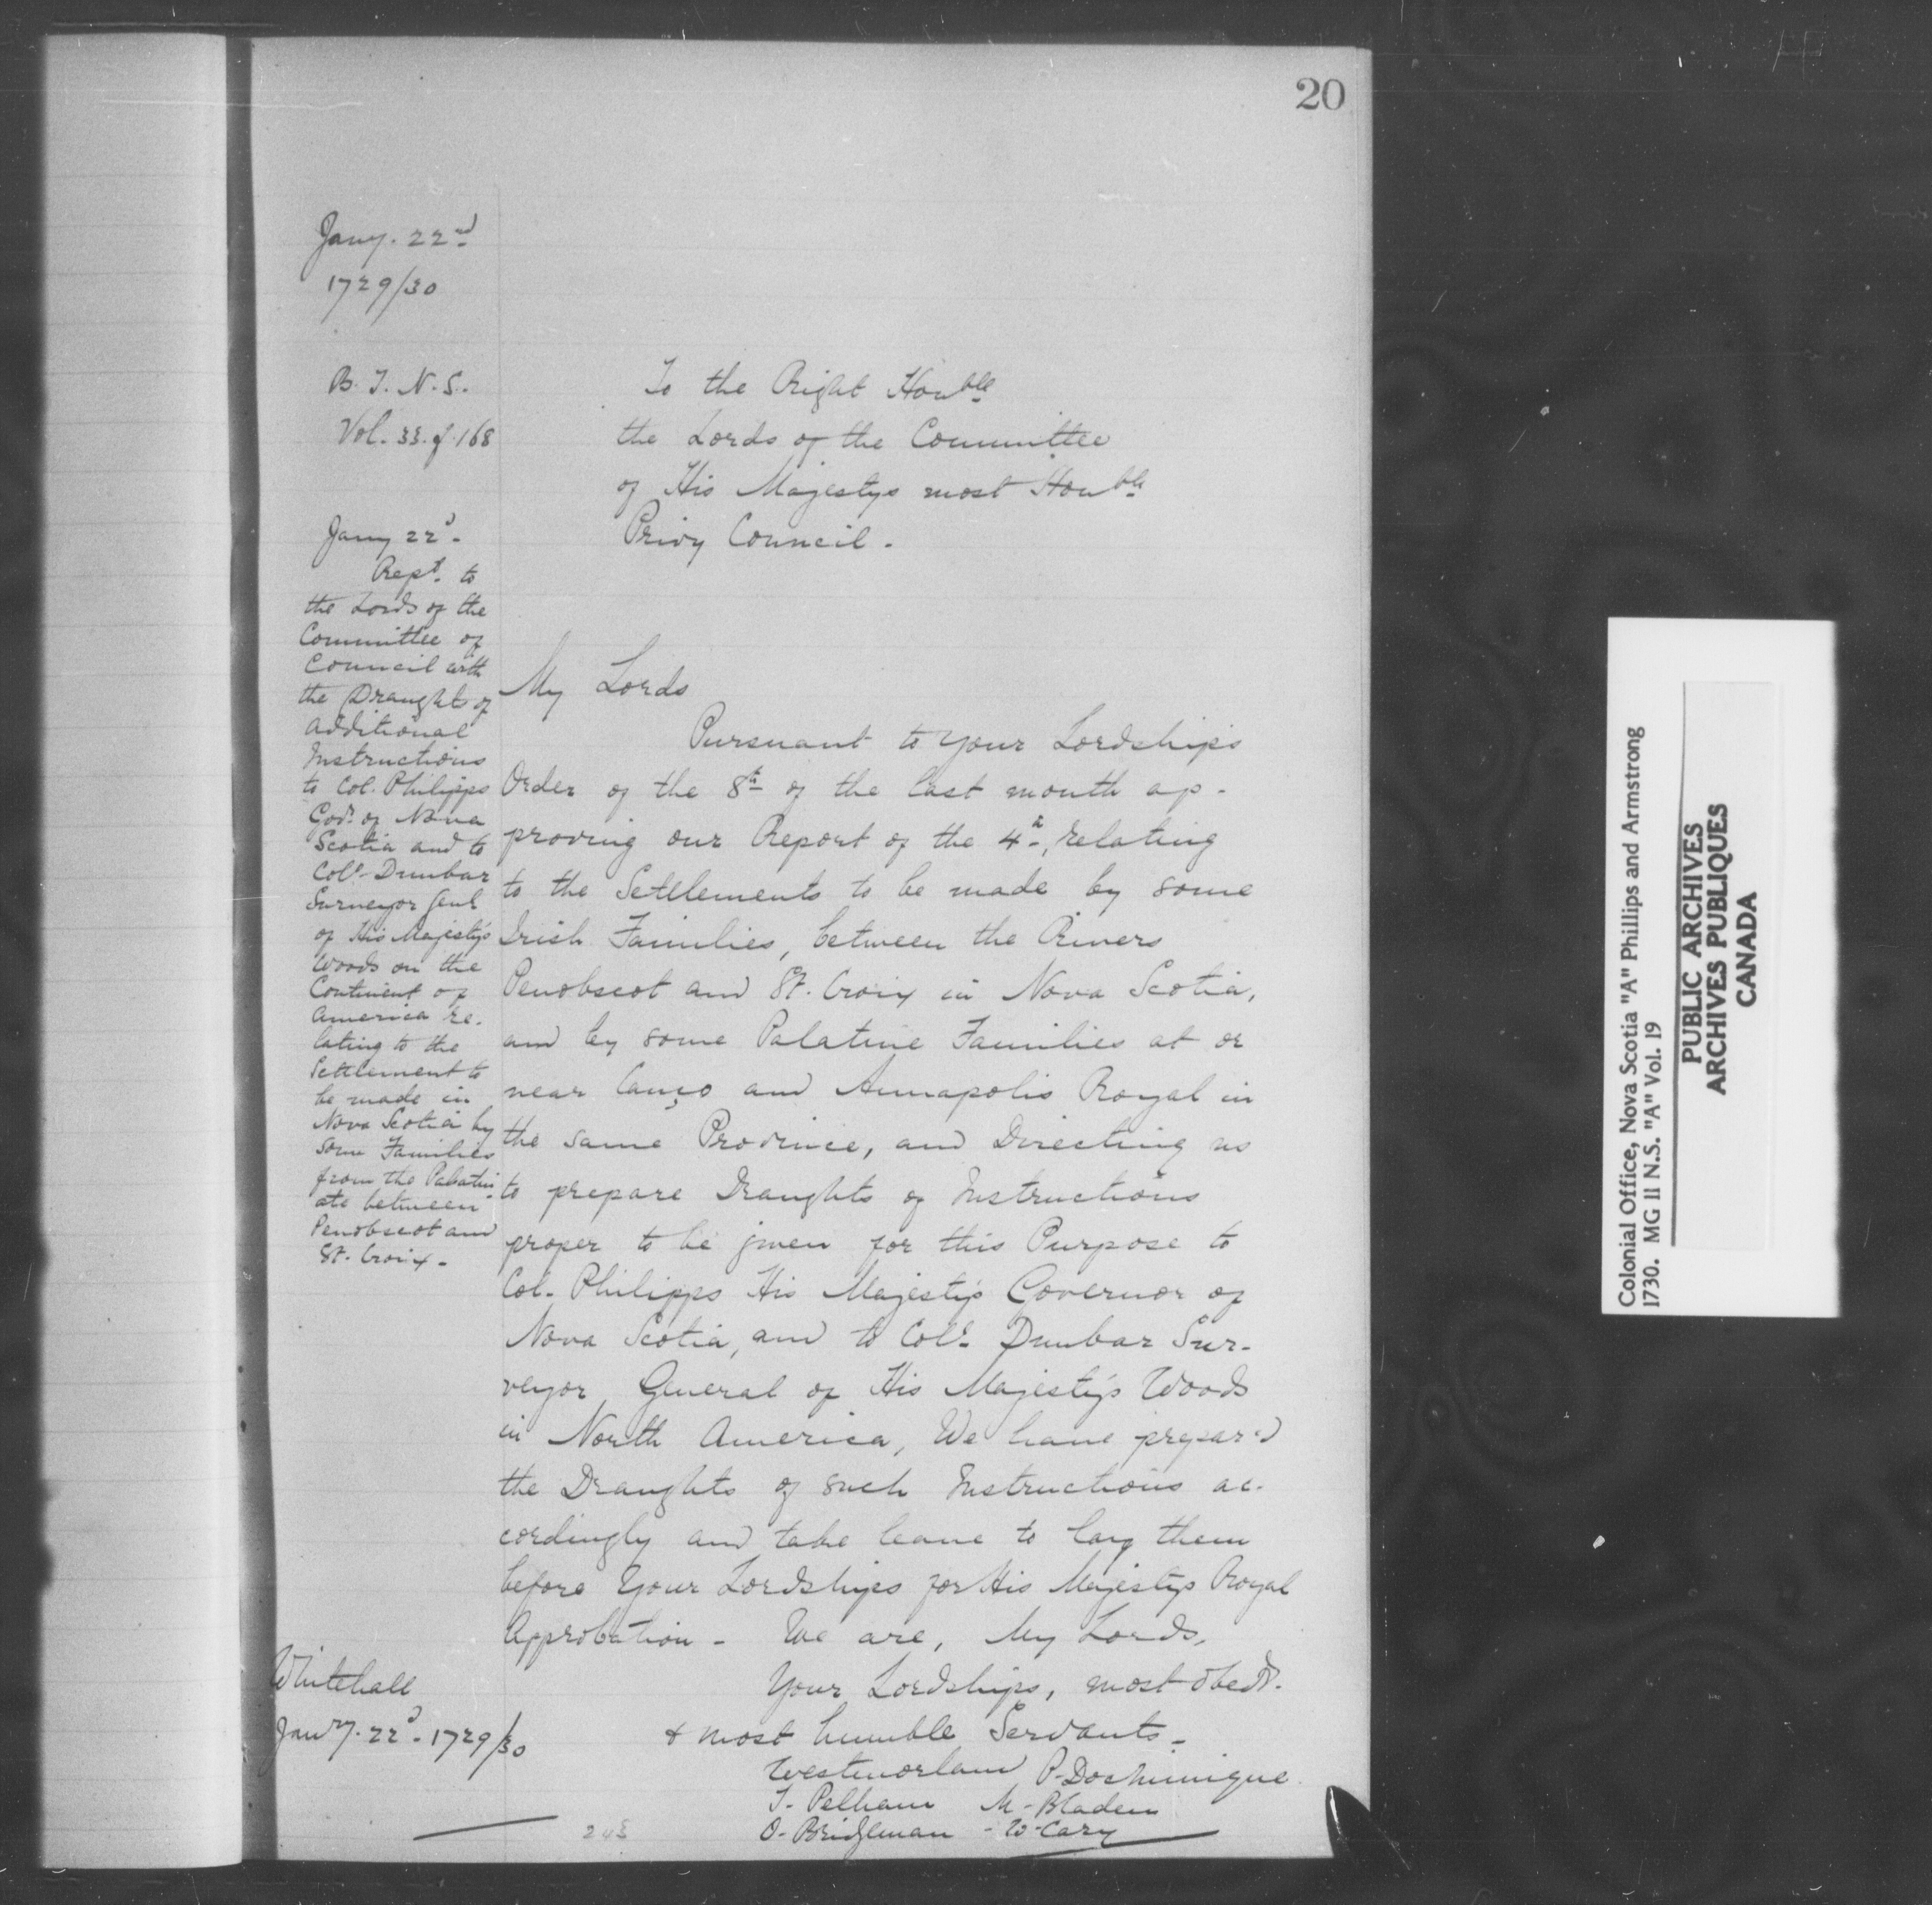 20
Jany. 22nd
1729/30
B. T. N. S.
Vol. 33. f. 168
To the Right Honble
the Lords of the Committee
of His Majestys most Honble
Privy Council.
Jany 22d.
Rept. to
the Lords of the
Committee of
Council with
the Draughts of
additional
Instructions
to Col. Philipps
Govr. of Nova
Scotia and to
Coll. Dunbar
Surveyor Genl
of His Majesty's
Woods on the
Continent of
America re-
lating to the
Settlement to
be made in
Nova Scotia by
some Families
from the Palatin-
ate between
Penobscot and
St. Croix.
My Lords
Pursuant to Your Lordships
Order of the 8th of the last month ap-
proving our Report of the 4th, relating
to the Settlements to be made by some
Irish Families, between the Rivers
Penobscot and St. Croix in Nova Scotia,
and by some Palatine Families at or
near Canço and Annapolis Royal in
the same Province, and Directing us
to prepare Draughts of Instructions
proper to be given for this Purpose to
Col. Philipps His Majesty's Governor of
Nova Scotia, and to Coll. Dunbar Sur-
veyor General of His Majesty's Woods
in North America, We have prepar'd
the Draughts of such Instructions ac-
cordingly and take leave to lay them
before Your Lordships for His Majestys Royal
Approbation - We are, My Lords,
Your Lordships, most obedt.
& most humble Servants.
Whitehall
Janry. 22d. 1729/30
Westmorland P. Dochminique
T. Pelham M. Bladen
O. Bridgeman - W. Cary
Colonial Office, Nova Scotia "A" Phillips and Armstrong
1730. MG 11 N.S. "A" Vol. 19
PUBLIC ARCHIVES
ARCHIVES PUBLIQUES
CANADA